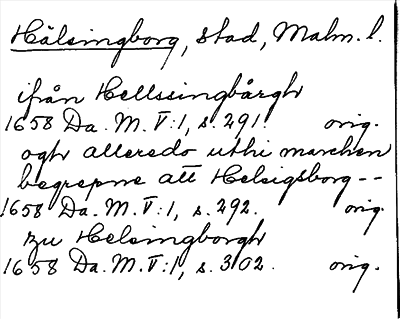 Hälsingborg, stad, Malm. l.
ifrån Hellssingbårgh
1658 Da. M. V:1, s. 291. orig.
ogh alleredo uthi marchen
begrepne att Helsigsborg --
1658 Da. M. V:1, s. 292. orig.
zu Helsingborgh
1658 Da. M. V:1, s. 302. orig.